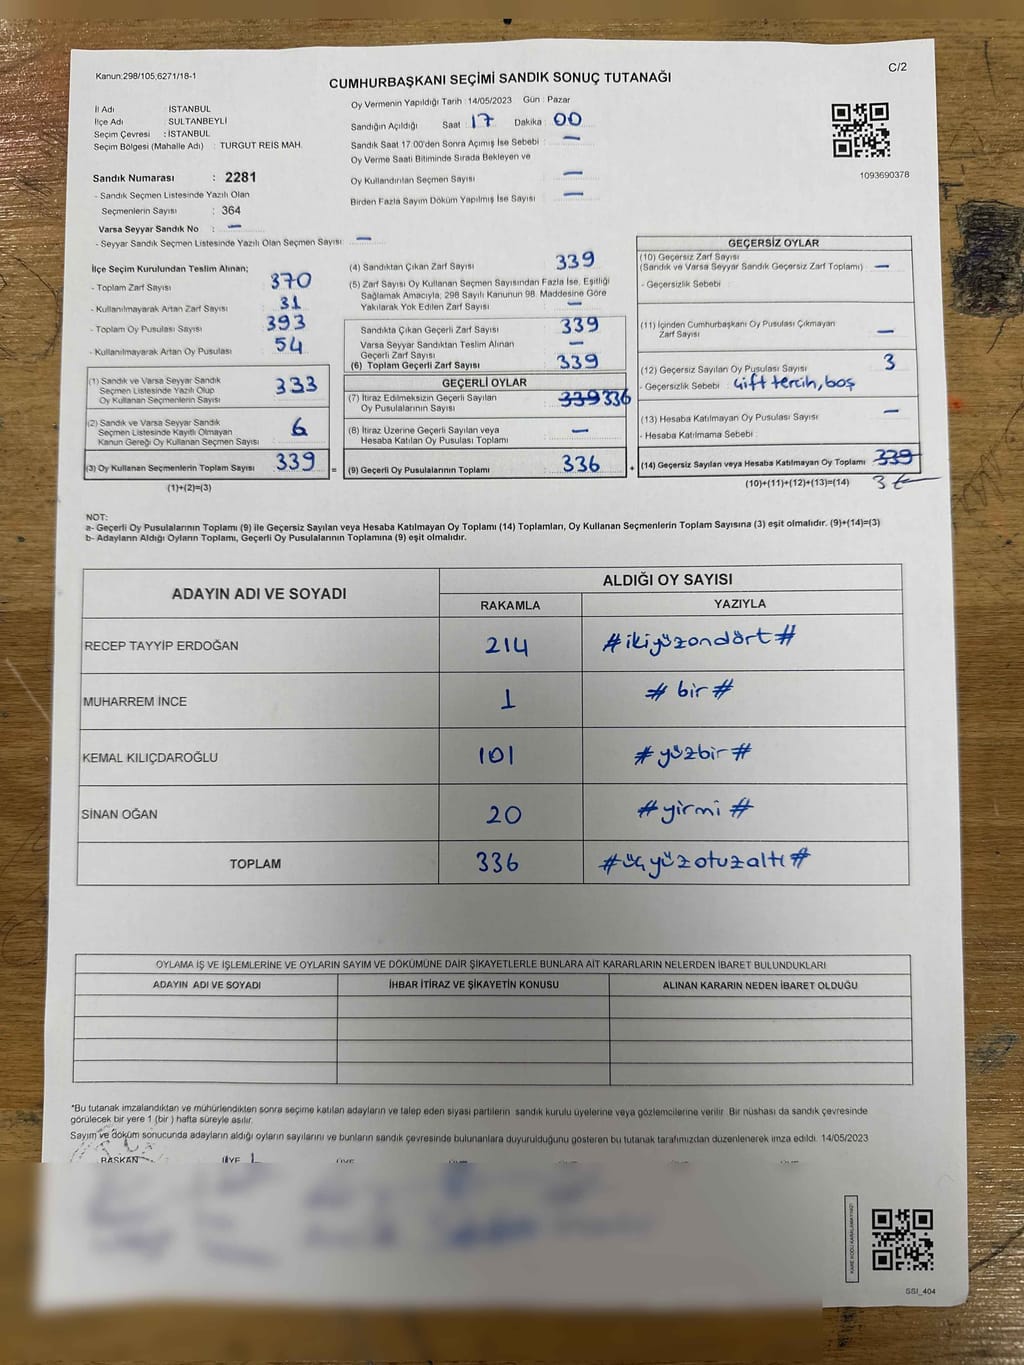 Kanun:298/105,6271/18-1
C/2
CUMHURBAŞKANI SEÇİMİ SANDIK SONUÇ TUTANAĞI
İl Adı : İSTANBUL
İlçe Adı : SULTANBEYLİ
Seçim Çevresi : İSTANBUL
Seçim Bölgesi (Mahalle Adı) : TURGUT REİS MAH.
Sandık Numarası : 2281
- Sandık Seçmen Listesinde Yazılı Olan
Seçmenlerin Sayısı : 364
Varsa Seyyar Sandık No : —
- Seyyar Sandık Seçmen Listesinde Yazılı Olan Seçmen Sayısı: —
Oy Vermenin Yapıldığı Tarih :14/05/2023 Gün : Pazar
Sandığın Açıldığı Saat : 17 Dakika : 00
Sandık Saat 17.00'den Sonra Açımış İse Sebebi : —
Oy Verme Saati Bitiminde Sırada Bekleyen ve
Oy Kullandırılan Seçmen Sayısı —
Birden Fazla Sayım Döküm Yapılmış İse Sayısı —
1093690378
İlçe Seçim Kurulundan Teslim Alınan;
- Toplam Zarf Sayısı : 370
- Kullanılmayarak Artan Zarf Sayısı : 31
- Toplam Oy Pusulası Sayısı : 393
- Kullanılmayarak Artan Oy Pusulası : 54
(1) Sandık ve Varsa Seyyar Sandık
Seçmen Listesinde Yazılı Olup
Oy Kullanan Seçmenlerin Sayısı 333
(2) Sandık ve Varsa Seyyar Sandık
Seçmen Listesinde Kayıtlı Olmayan
Kanun Gereği Oy Kullanan Seçmen Sayısı 6
(3) Oy Kullanan Seçmenlerin Toplam Sayısı 339 =
(1)+(2)=(3)
(4) Sandıktan Çıkan Zarf Sayısı 339
(5) Zarf Sayısı Oy Kullanan Seçmen Sayısından Fazla İse, Eşitliği
Sağlamak Amacıyla; 298 Sayılı Kanunun 98. Maddesine Göre
Yakılarak Yok Edilen Zarf Sayısı —
Sandıkta Çıkan Geçerli Zarf Sayısı 339
Varsa Seyyar Sandıktan Teslim Alınan
Geçerli Zarf Sayısı —
(6) Toplam Geçerli Zarf Sayısı 339
GEÇERLİ OYLAR
(7) İtiraz Edilmeksizin Geçerli Sayılan
Oy Pusulalarının Sayısı 339 336
(8) İtiraz Üzerine Geçerli Sayılan veya
Hesaba Katılan Oy Pusulası Toplamı —
(9) Geçerli Oy Pusulalarının Toplamı 336 +
GEÇERSİZ OYLAR
(10) Geçersiz Zarf Sayısı
(Sandık ve Varsa Seyyar Sandık Geçersiz Zarf Toplamı) —
- Geçersizlik Sebebi :
(11) İçinden Cumhurbaşkanı Oy Pusulası Çıkmayan
Zarf Sayısı —
(12) Geçersiz Sayılan Oy Pusulası Sayısı 3
- Geçersizlik Sebebi : Çift tercih, boş
(13) Hesaba Katılmayan Oy Pusulası Sayısı —
- Hesaba Katılmama Sebebi :
(14) Geçersiz Sayılan veya Hesaba Katılmayan Oy Toplamı 339
(10)+(11)+(12)+(13)=(14) 3
NOT:
a- Geçerli Oy Pusulalarının Toplamı (9) ile Geçersiz Sayılan veya Hesaba Katılmayan Oy Toplamı (14) Toplamları, Oy Kullanan Seçmenlerin Toplam Sayısına (3) eşit olmalıdır. (9)+(14)=(3)
b- Adayların Aldığı Oyların Toplamı, Geçerli Oy Pusulalarının Toplamına (9) eşit olmalıdır.
ADAYIN ADI VE SOYADI
ALDIĞI OY SAYISI
RAKAMLA YAZIYLA
RECEP TAYYİP ERDOĞAN 214 #ikiyüzondört#
MUHARREM İNCE 1 #bir#
KEMAL KILIÇDAROĞLU 101 #yüzbir#
SİNAN OĞAN 20 #yirmi#
TOPLAM 336 #üçyüzotuzaltı#
OYLAMA İŞ VE İŞLEMLERİNE VE OYLARIN SAYIM VE DÖKÜMÜNE DAİR ŞİKAYETLERLE BUNLARA AİT KARARLARIN NELERDEN İBARET BULUNDUKLARI
ADAYIN ADI VE SOYADI İHBAR İTİRAZ VE ŞİKAYETİN KONUSU ALINAN KARARIN NEDEN İBARET OLDUĞU
*Bu tutanak imzalandıktan ve mühürlendikten sonra seçime katılan adayların ve talep eden siyasi partilerin sandık kurulu üyelerine veya gözlemcilerine verilir. Bir nüshası da sandık çevresinde
görülecek bir yere 1 (bir ) hafta süreyle asılır.
Sayım ve döküm sonucunda adayların aldığı oyların sayılarını ve bunların sandık çevresinde bulunanlara duyurulduğunu gösteren bu tutanak tarafımızdan düzenlenerek imza edildi. 14/05/2023
BAŞKAN ÜYE ÜYE ÜYE ÜYE ÜYE ÜYE
KARE KODU KARALAMAYINIZ!
SSI_404